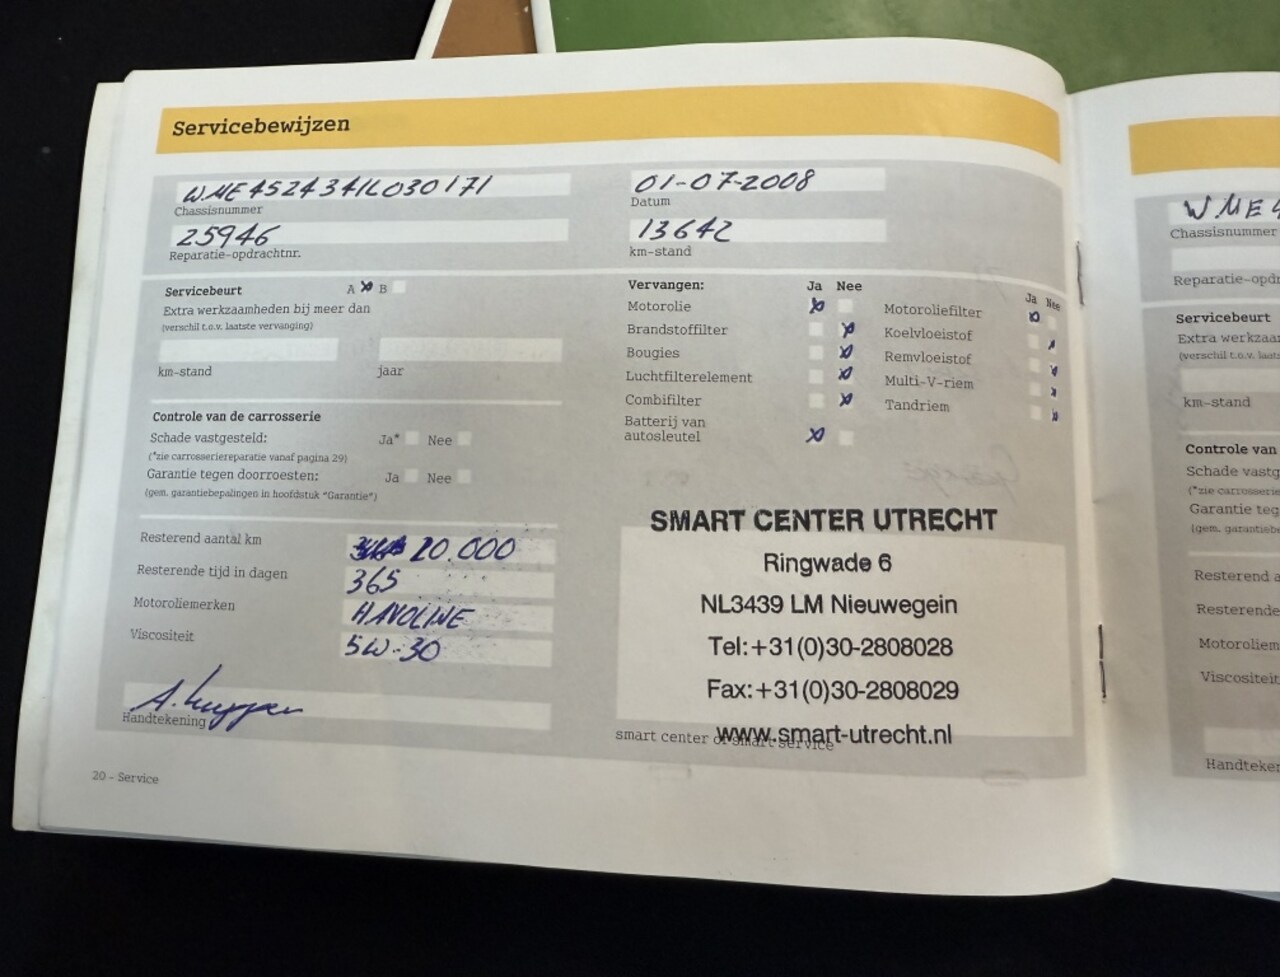 Servicebewijzen
WME4524341L030171
Chassisnummer
01-07-2008
Datum
25946
Reparatie-opdrachtnr.
13642
km-stand
Servicebeurt A B
Extra werkzaamheden bij meer dan
(verschil t.o.v. laatste vervanging)
km-stand jaar
Controle van de carrosserie
Schade vastgesteld: Ja* Nee
(*zie carrosseriereparatie vanaf pagina 29)
Garantie tegen doorroesten: Ja Nee
(gem. garantiebepalingen in hoofdstuk "Garantie")
Vervangen: Ja Nee
Motorolie
Brandstoffilter
Bougies
Luchtfilterelement
Combifilter
Batterij van
autosleutel
Ja Nee
Motoroliefilter
Koelvloeistof
Remvloeistof
Multi-V-riem
Tandriem
Resterend aantal km 20.000
Resterende tijd in dagen 365
Motoroliemerken HAVOLINE
Viscositeit 5W-30
A. Kuyper
Handtekening
SMART CENTER UTRECHT
Ringwade 6
NL3439 LM Nieuwegein
Tel:+31(0)30-2808028
Fax:+31(0)30-2808029
www.smart-utrecht.nl
smart center of smart service
20 - Service
WME4
Chassisnummer
Reparatie-opdr
Servicebeurt
Extra werkzaa
(verschil t.o.v. laats
km-stand
Controle van
Schade vastg
(*zie carrosserie
Garantie teg
(gem. garantiebe
Resterend a
Resterende
Motoroliem
Viscositeit
Handteker